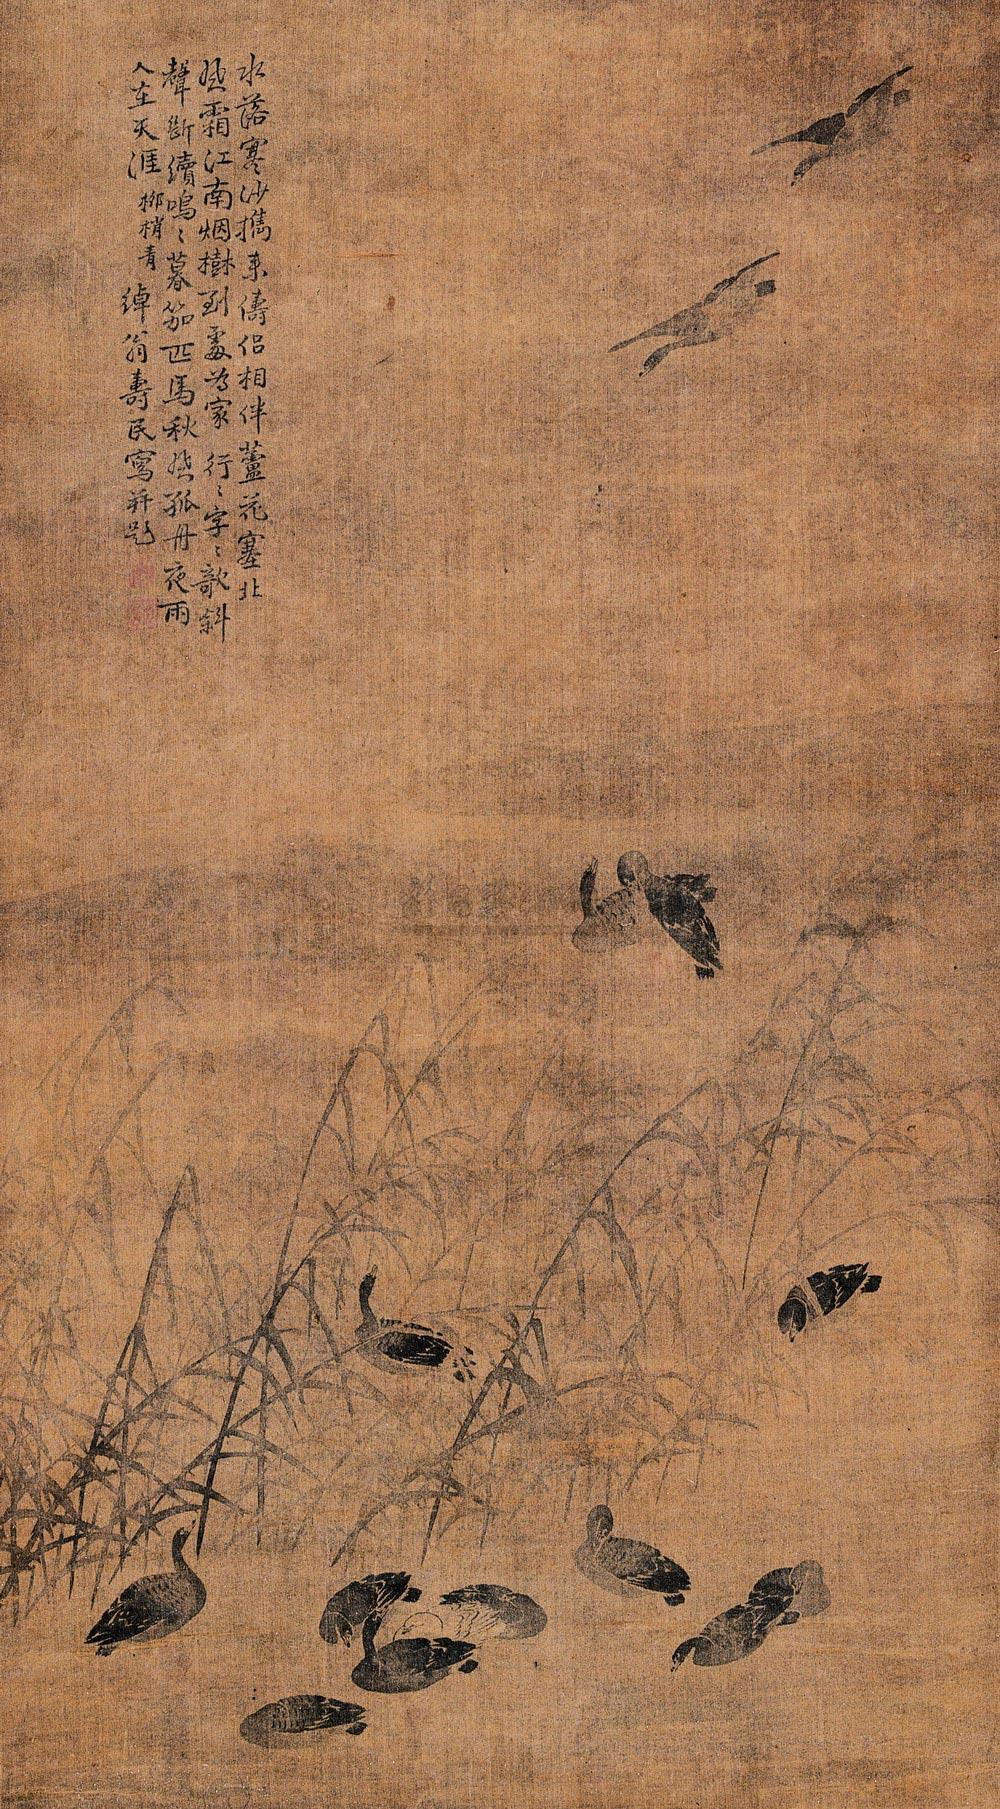 水落寒沙携来俦侣相伴蘆花塞北
風霜江南烟樹到處為家行〻字〻欹斜
聲斷續鳴〻暮笳匹馬秋風孤舟夜雨
人在天涯 柳梢青 绰翁壽民寫并題